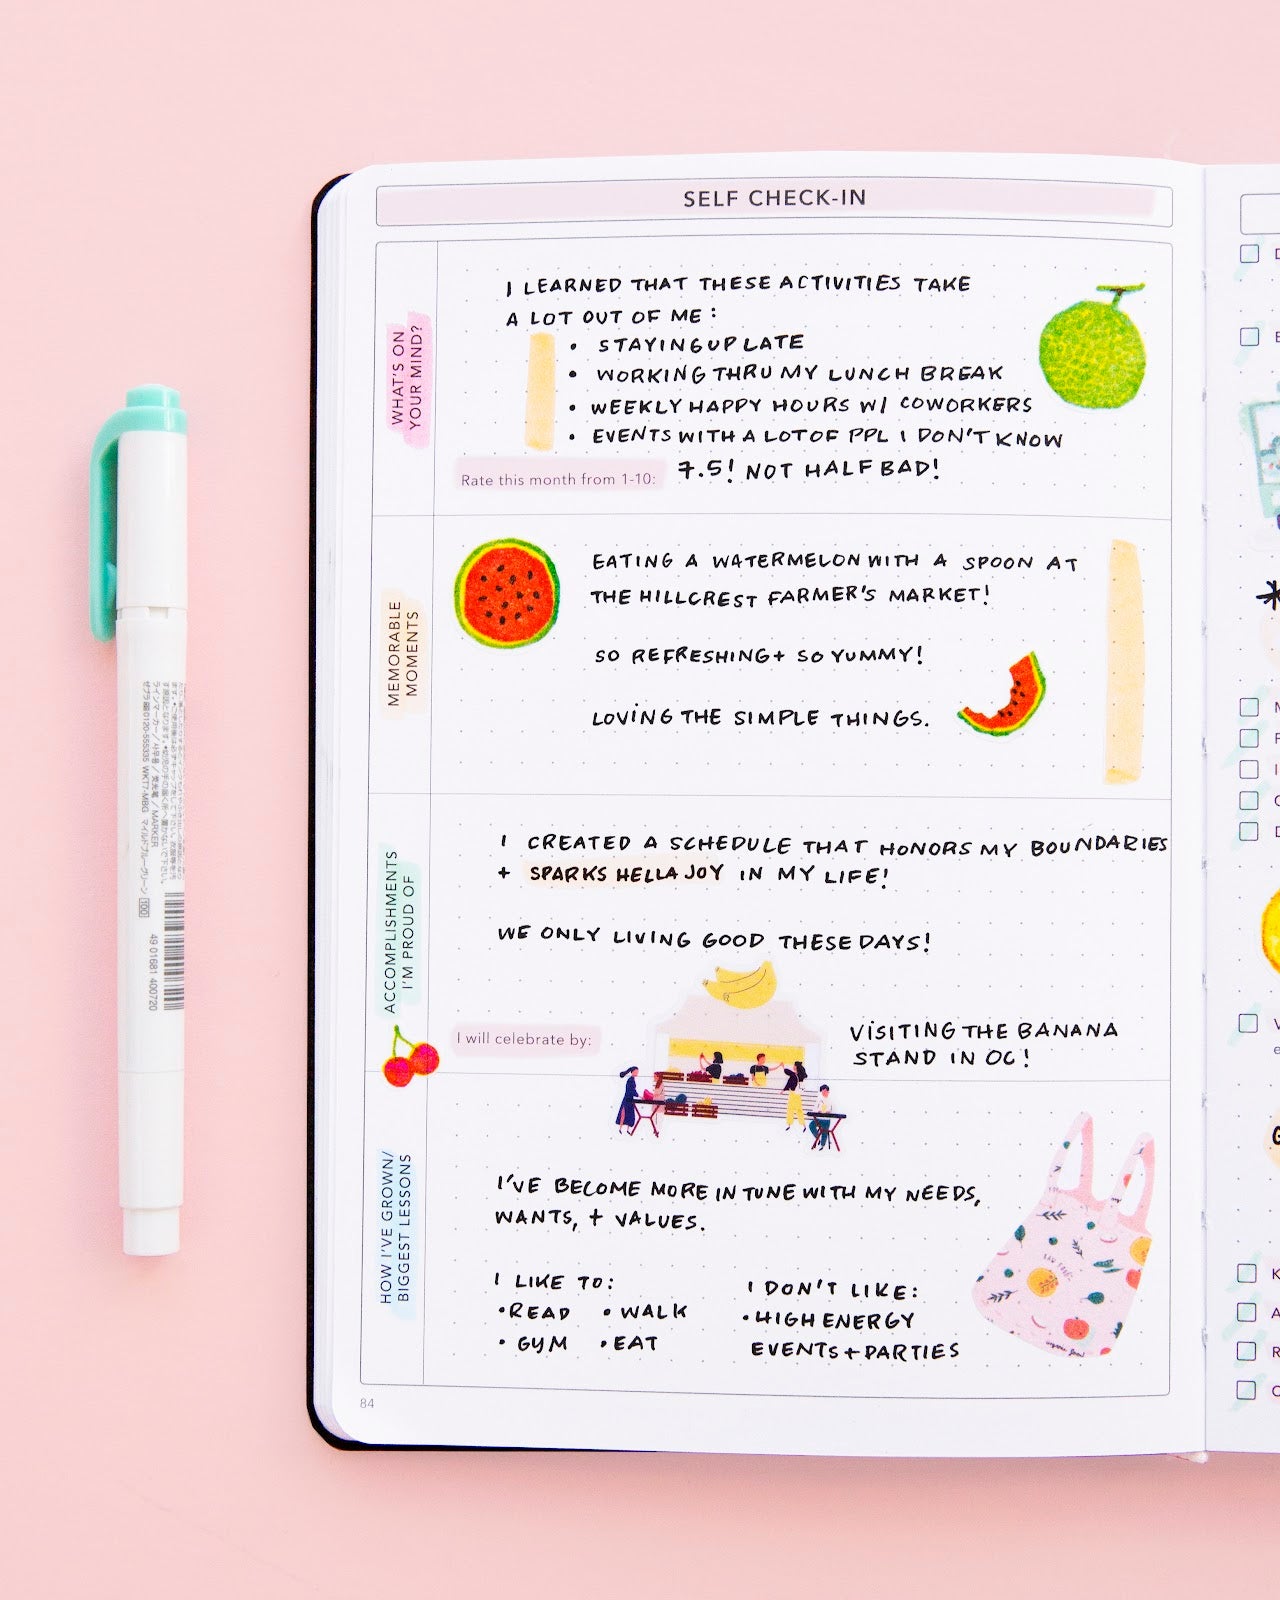 SELF CHECK-IN
WHAT'S ON
YOUR MIND?
I LEARNED THAT THESE ACTIVITIES TAKE
A LOT OUT OF ME:
• STAYING UP LATE
• WORKING THRU MY LUNCH BREAK
• WEEKLY HAPPY HOURS W/ COWORKERS
• EVENTS WITH A LOT OF PPL I DON'T KNOW
Rate this month from 1-10: 7.5! NOT HALF BAD!
MEMORABLE
MOMENTS
EATING A WATERMELON WITH A SPOON AT
THE HILLCREST FARMER'S MARKET!
SO REFRESHING + SO YUMMY!
LOVING THE SIMPLE THINGS.
ACCOMPLISHMENTS
I'M PROUD OF
I CREATED A SCHEDULE THAT HONORS MY BOUNDARIES
+ SPARKS HELLA JOY IN MY LIFE!
WE ONLY LIVING GOOD THESE DAYS!
I will celebrate by:
VISITING THE BANANA
STAND IN OC!
HOW I'VE GROWN/
BIGGEST LESSONS
I'VE BECOME MORE IN TUNE WITH MY NEEDS,
WANTS, + VALUES.
I LIKE TO:
• READ • WALK
• GYM • EAT
I DON'T LIKE:
• HIGH ENERGY
EVENTS + PARTIES
84
ラインマーカー／サインペン／荧光笔／MARKER
0120-555335 WKT7-MBG マイルドブルーグリーン 100
49 01681 400720